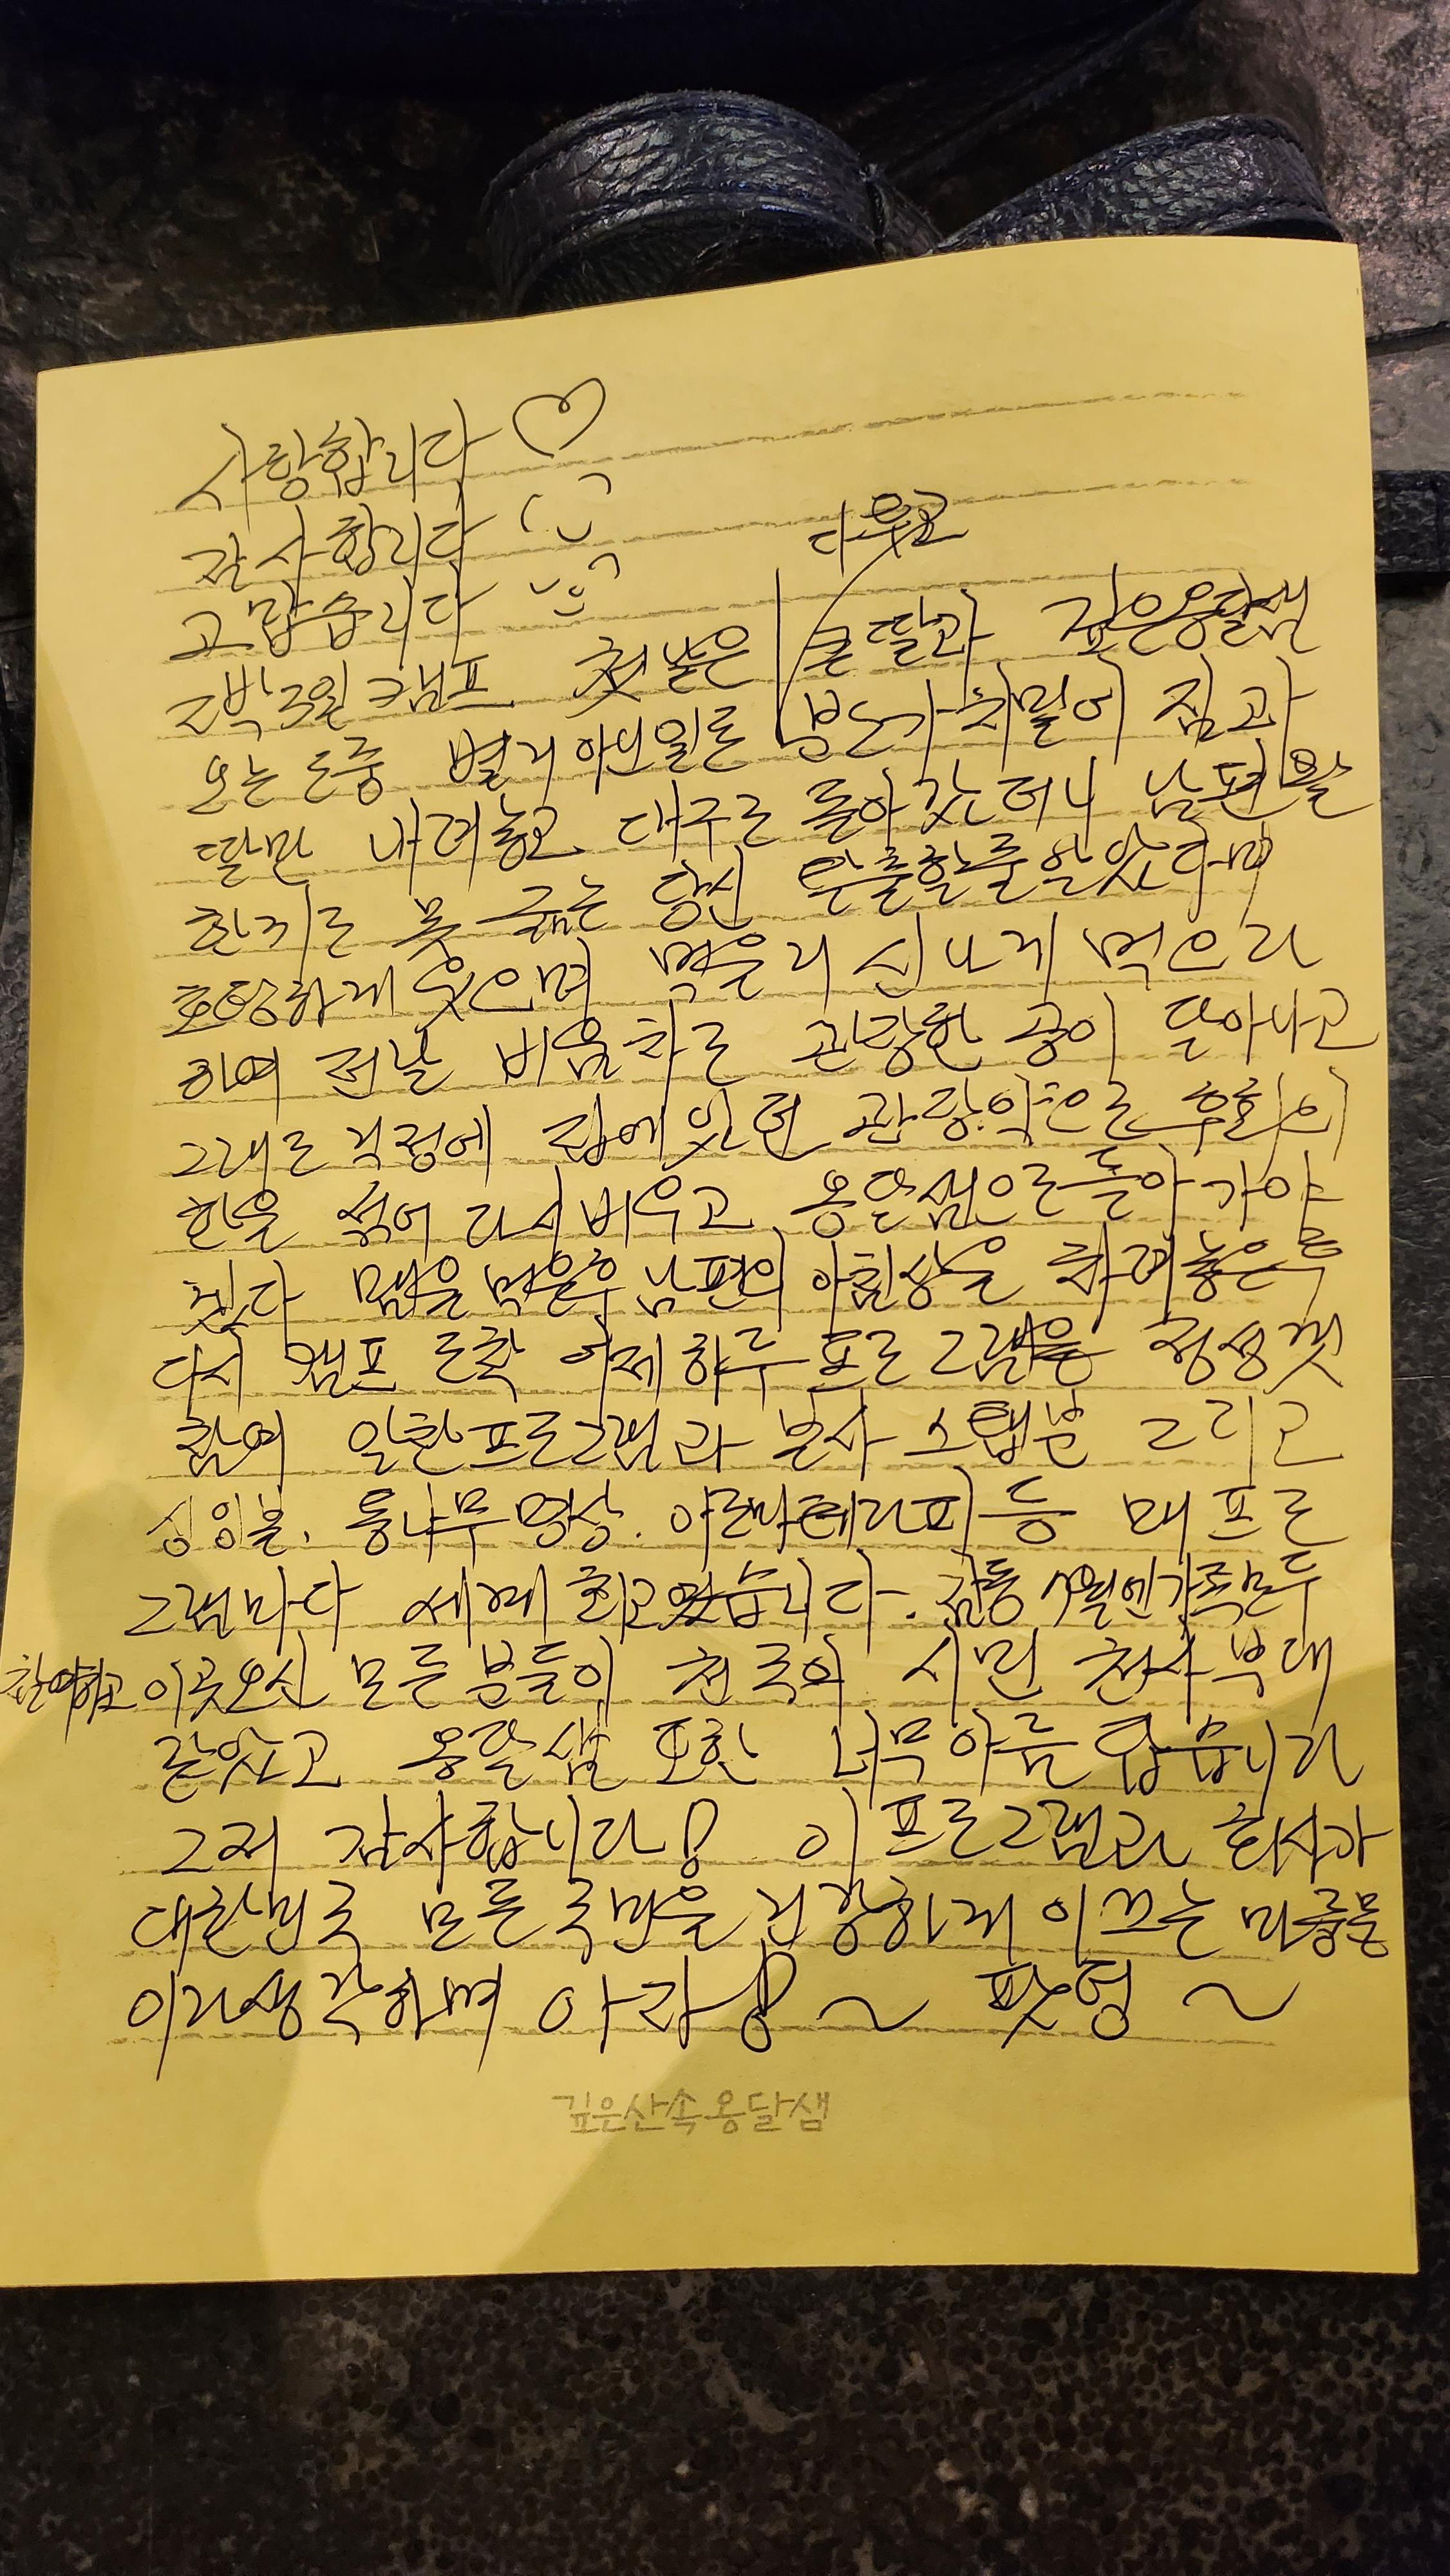 사랑합니다 ♡
감사합니다
고맙습니다
다투고
2박3일 캠프. 첫날은 큰딸과 깊은옹달샘
오는 도중 별거 아닌일로 치밀어 짐과
딸만 내려놓고 대구로 돌아갔더니 남편 왈
한끼도 못 굶는 당신 탈출할줄알았다며
호탕하게 웃으며 먹을거 신나게 먹으라
하여 전날 비움차로 관장한 공이 달아나고
그대로 걱정에 집에있던 관장약으로 후회의
한을 섞어 다시비우고 옹달샘으로돌아가야
겠다 맴을 먹은후 남편의 아침상을 차려놓은후
다시 캠프 도착 어제하루 프로그램을 정성껏
참여 알찬프로그램과 봉사 스탭분 그리고
싱잉볼. 통나무명상. 아로마테라피 등 매 프로
그램마다 세계최고였습니다. 감동 가족모두
참여하고 이곳오신 모든 분들이 천국의 시민 천사부대
같았고 옹달샘 또한 너무 아름답습니다
그저 감사합니다! 이 프로그램과 회사가
대한민국 모든국민을 건강하게 이끄는 마중물
이라생각하며 아자! ~ 팟팅 ~
깊은산속옹달샘